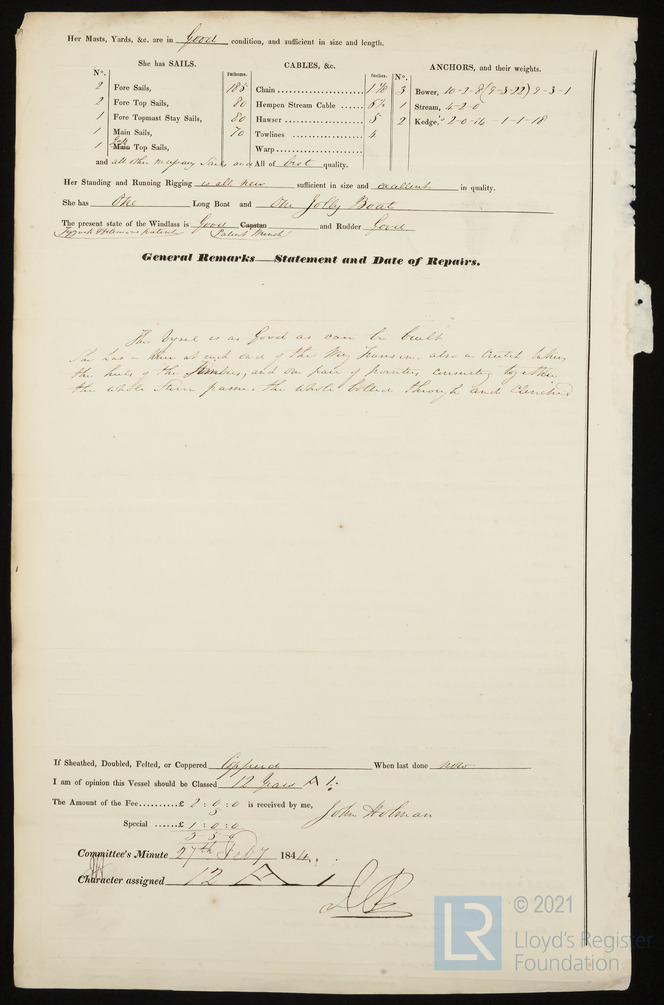 Her Masts, Yards, &c. are in Good condition, and sufficient in size and length.
She has SAILS.
CABLES, &c.
ANCHORS, and their weights.
N°.
Fathoms.
Inches.
N°.
2 Fore Sails, 185 Chain 1 3 Bower, 10-2-8 (9-3-22) 9-3-1
2 Fore Top Sails, 80 Hempen Stream Cable 1 Stream, 4-2-0
1 Fore Topmast Stay Sails, 80 Hawser 5 2 Kedge, 2-0-14 - 1-1-18
1 Main Sails, 70 Towlines 4
1 Main Top Sails, Warp
and all other necessary Sails and All of best quality.
Her Standing and Running Rigging is all new sufficient in size and excellent in quality.
She has One Long Boat and One Jolly Boat
The present state of the Windlass is Good Capstan and Rudder Good
patent Patent Winch
General Remarks—Statement and Date of Repairs.
The Vessel is as Good as can be built
She has a knee at each end of the Wing Transom, also a Crutch taking
the heels of the Timbers, and one pair of pointers connecting together
the whole Stern frame the whole bolted through and Clenched
If Sheathed, Doubled, Felted, or Coppered Coppered When last done now
I am of opinion this Vessel should be Classed 12 Years A 1.
The Amount of the Fee £ 2 : 0 : 0 is received by me,
John Holman
5
Special £ 1 : 0 : 0
Committee's Minute 27th Feby 1844.
Character assigned 12 A 1
LR
© 2021
Lloyd's Register
Foundation